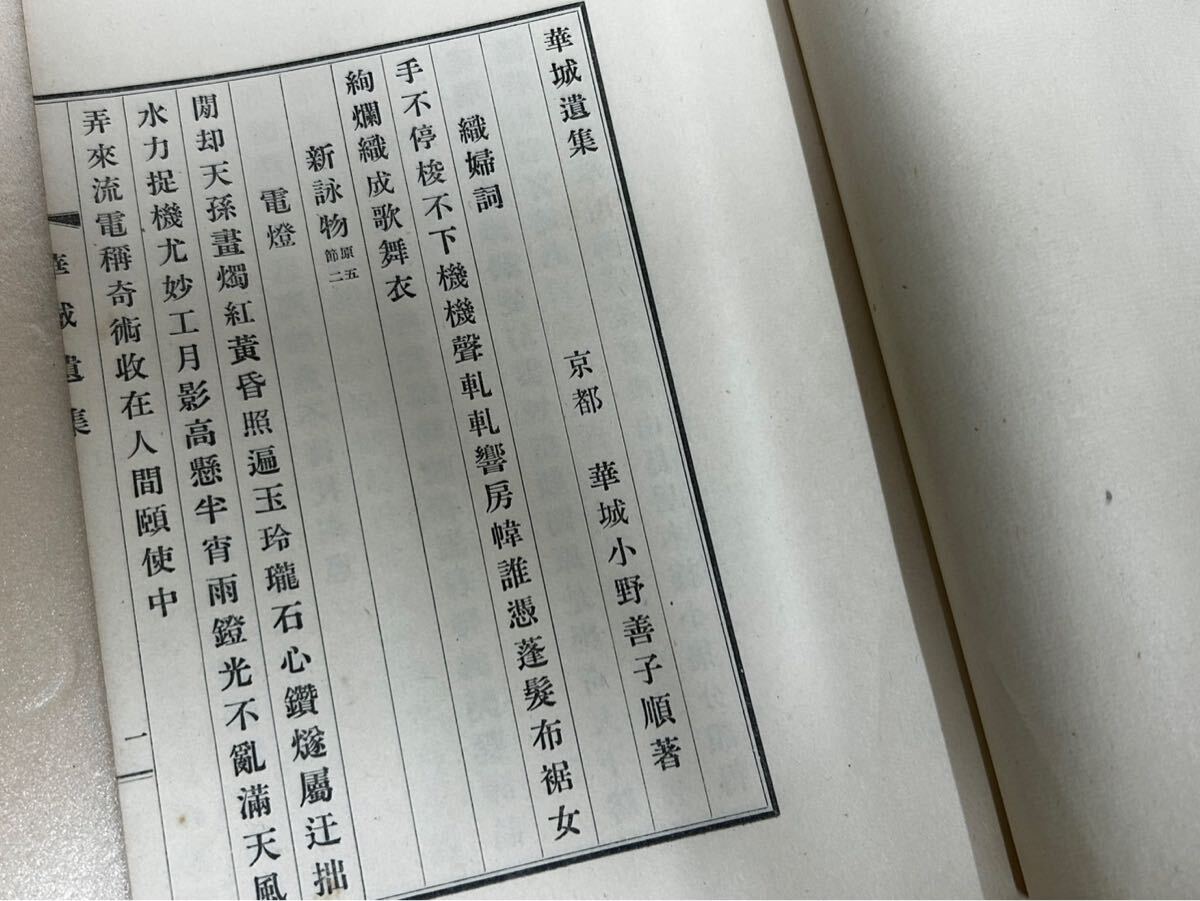 華城遺集
京都 華城小野善子順著
織婦詞
手不停梭不下機機聲軋軋響房幃誰憑蓬髮布裾女
絢爛織成歌舞衣
新詠物原五節二
電燈
閒却天孫畫燭紅黃昏照遍玉玲瓏石心鑽燧屬迂拙
水力捉機尤妙工月影高懸半宵雨鐙光不亂滿天風
弄來流電稱奇術收在人間頤使中
華城遺集
一